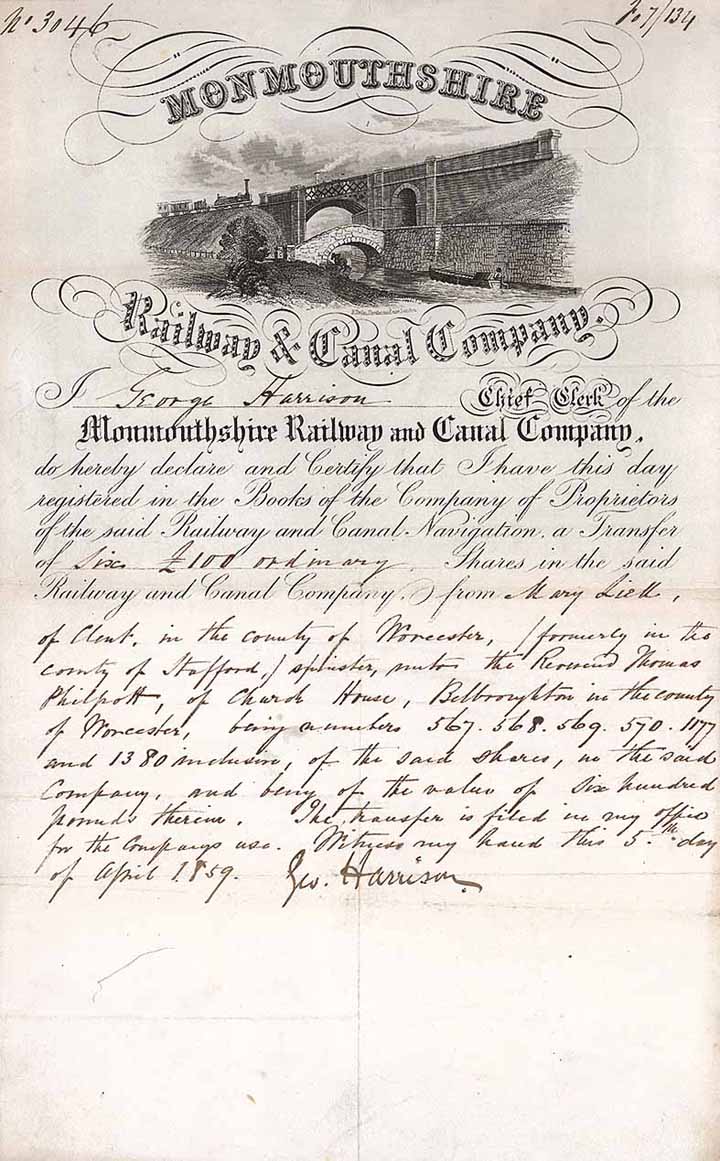 No 3046
Fo 7/134
MONMOUTHSHIRE
Railway & Canal Company.
I George Harrison Chief Clerk of the
Monmouthshire Railway and Canal Company,
do hereby declare and Certify that I have this day
registered in the Books of the Company of Proprietors
of the said Railway and Canal Navigation, a Transfer
of Six £100 ordinary Shares in the said
Railway and Canal Company, from Mary Liell,
of Clent, in the county of Worcester, (formerly in the
county of Stafford,) spinster, unto the Reverend Thomas
Philpott, of Church House, Belbroughton in the county
of Worcester, being numbers 567. 568. 569. 570. 1177
and 1380 inclusive, of the said shares, in the said
Company, and being of the value of six hundred
pounds therein. The transfer is filed in my office
for the Companys use. Witness my hand this 5th day
of April 1859. Geo. Harrison